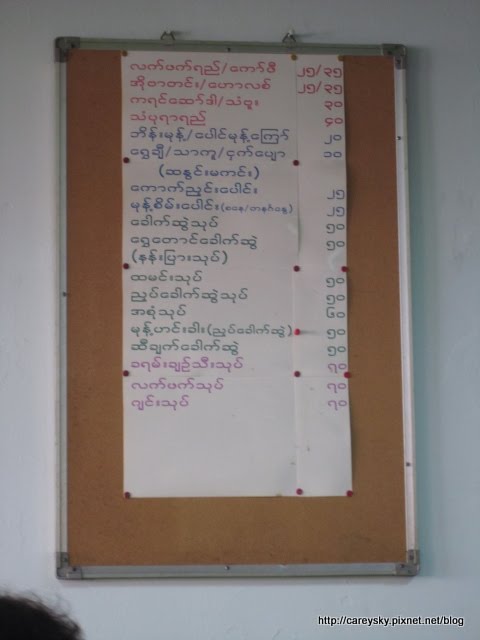 လက်ဖက်ရည်/ကော်ဖီ ၂၅/၃၅
အိုဗာတင်း/ဟောလစ် ၂၅/၃၅
ကရင်ဆော်ဒါ/သံဗူး ၃၀
သံပုရာရည် ၄၀
ဘိန်းမုန့်/ပေါင်မုန့်ကြော် ၂၀
ရွှေချီ/သာကူ/ငှက်ပျော ၁၀
(ဆနွင်းမကင်း)
ကောက်ညှင်းပေါင်း ၂၅
မုန့်စိမ်းပေါင်း(စနေ/တနင်္ဂနွေ) ၂၅
ခေါက်ဆွဲသုပ် ၅၀
ရွှေတောင်ခေါက်ဆွဲ ၅၀
(နန်းပြားသုပ်)
ထမင်းသုပ် ၅၀
ညှပ်ခေါက်ဆွဲသုပ် ၅၀
အစုံသုပ် ၆၀
မုန့်ဟင်းခါး(ညှပ်ခေါက်ဆွဲ) ၅၀
ဆီချက်ခေါက်ဆွဲ ၅၀
ခရမ်းချဉ်သီးသုပ် ၇၀
လက်ဖက်သုပ် ၇၀
ဂျင်းသုပ် ၇၀
http://careysky.pixnet.net/blog